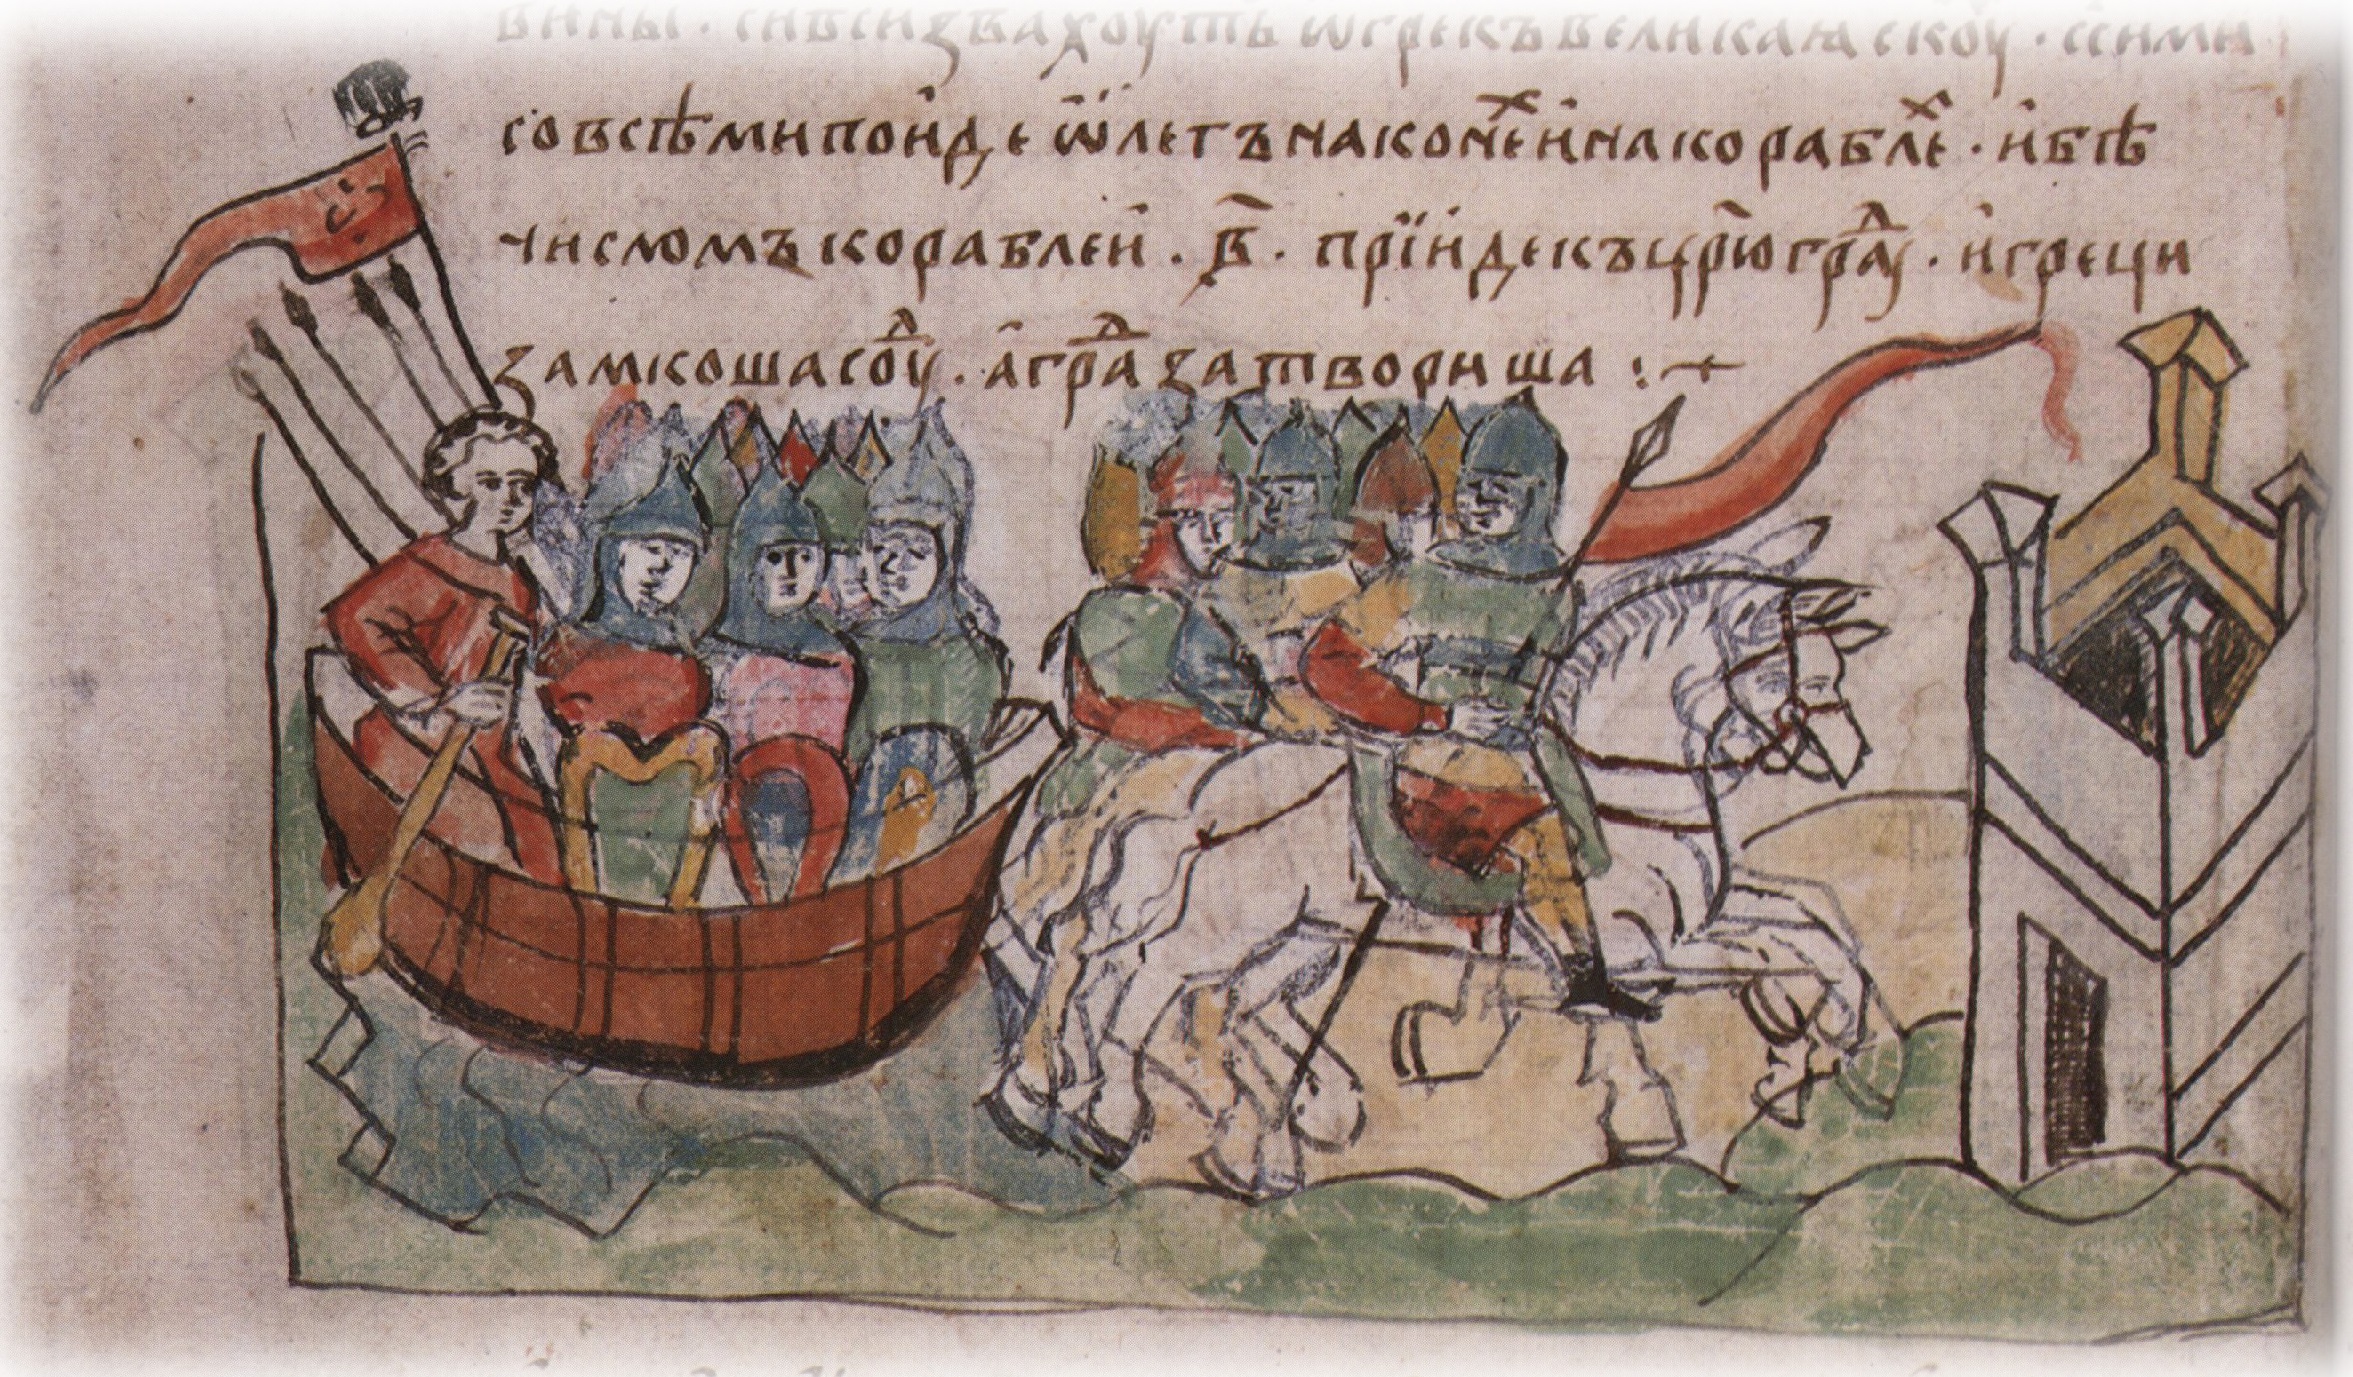 вины · сивсизвахоуть ѿгрекъ великаꙗ скоу · ссими
со всѣми поиде ѿлегъ на конеⷯ и на кораблеⷯ · и бѣ
числомъ кораблеи · в҃ · прїиде къ цр҃югра(д)у · и греци
замкоша соуⷣ · а граⷣ затвориша :~